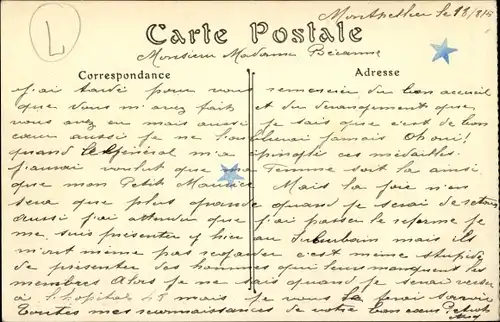 L
Montpellier le 18/8/15
Carte Postale
Monsieur Madame Bécanne
Correspondance
Adresse
j'ai tardé pour vous remercier du bon accueil
que vous m'avez fait et du derangement que
vous avez eu mais aussi je sais que c'est de bon
cœur aussi je ne l'oublierai jamais Oh oui!
quand le Général m'a épinglé ces médailles
j'aurai voulut que ma femme soit la ainsi
que mon Petit Maurice Mais la joie n'en
sera que plus grande quand je serai de retour
Aussi j'ai attendu que j'ai passer la reforme je
me suis présenter y hier au Suburbain mais ils
m'ont même pas regarder c'est même stupide
de présenter des hommes qui leurs manquent les
membres Alors je ne sais quand je serai verser
à l'hopital 45 mais je vous le ferai savoir
Toutes mes reconnaissances de votre bon cœur